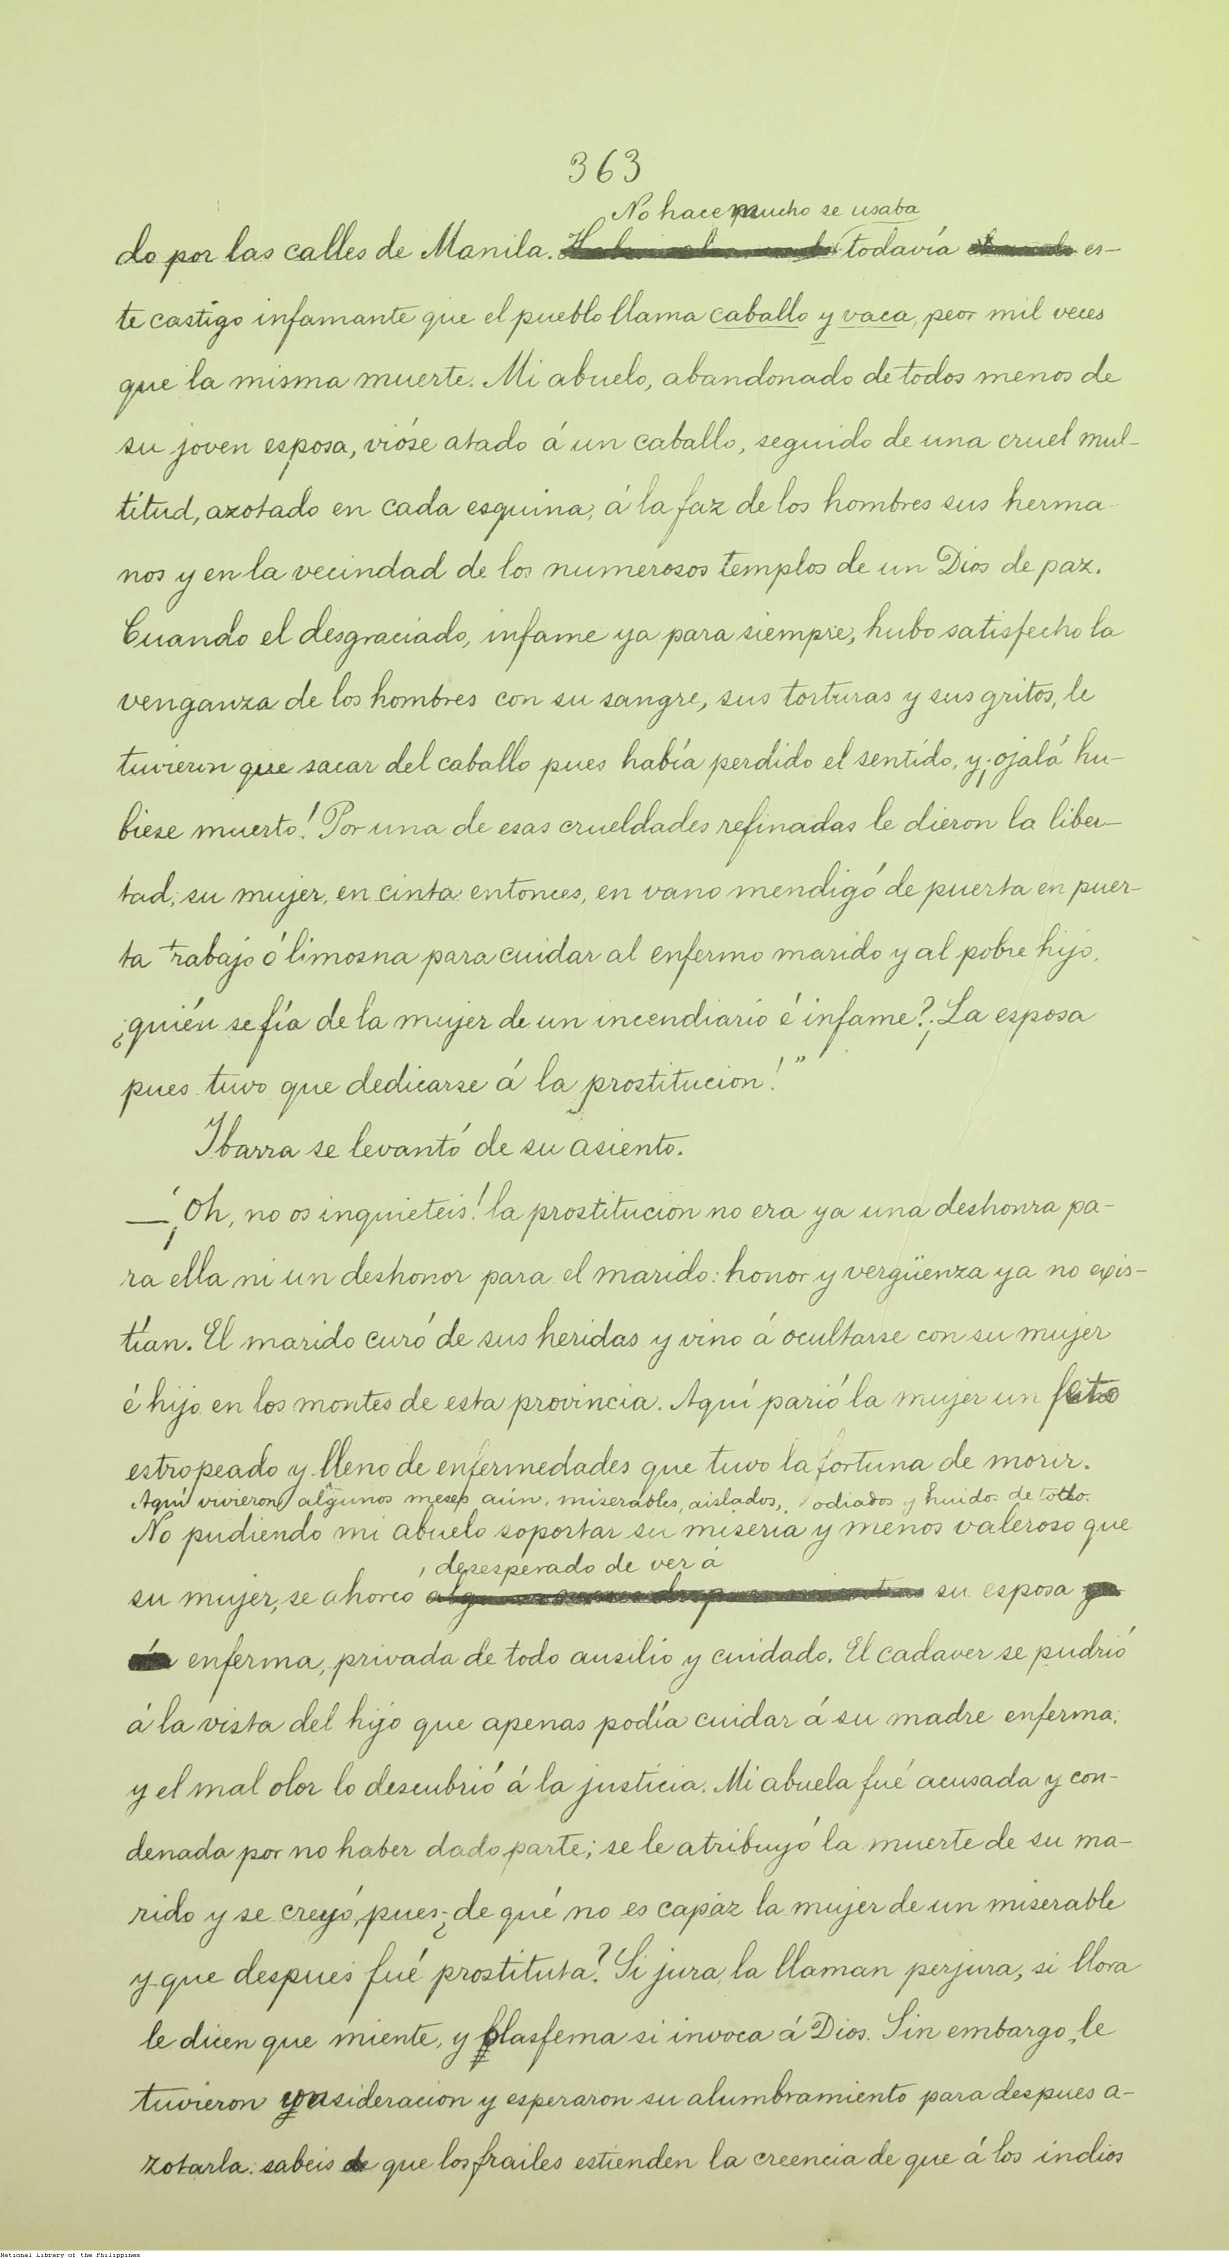 363
No hace mucho se usaba
do por las calles de Manila. todavía es-
te castigo infamante que el pueblo llama caballo y vaca, peor mil veces
que la misma muerte. Mi abuelo, abandonado de todos menos de
su joven esposa, vióse atado á un caballo, seguido de una cruel mul-
titud, azotado en cada esquina, á la faz de los hombres sus herma-
nos y en la vecindad de los numerosos templos de un Dios de paz.
Cuando el desgraciado, infame ya para siempre, hubo satisfecho la
venganza de los hombres con su sangre, sus torturas y sus gritos, le
tuvieron que sacar del caballo pues había perdido el sentido, y ¡ojalá hu-
biese muerto! Por una de esas crueldades refinadas le dieron la liber-
tad; su mujer, en cinta entonces, en vano mendigó de puerta en puer-
ta trabajo ó limosna para cuidar al enfermo marido y al pobre hijo,
¿quién se fía de la mujer de un incendiario é infame? ¡La esposa
pues tuvo que dedicarse á la prostitucion!”
Ibarra se levantó de su asiento.
—¡Oh, no os inquieteis! la prostitucion no era ya una deshonra pa-
ra ella ni un deshonor para el marido: honor y vergüenza ya no exis-
tían. El marido curó de sus heridas y vino á ocultarse con su mujer
é hijo en los montes de esta provincia. Aquí parió la mujer un feto
estropeado y lleno de enfermedades que tuvo la fortuna de morir.
Aquí vivieron algunos meses aún, miserables, aislados, odiados y huidos de todo.
No pudiendo mi abuelo soportar su miseria y menos valeroso que
, desesperado de ver á
su mujer, se ahorcó su esposa
enferma, privada de todo ausilio y cuidado. El cadaver se pudrió
á la vista del hijo que apenas podía cuidar á su madre enferma,
y el mal olor lo descubrió á la justicia. Mi abuela fué acusada y con-
denada por no haber dado parte; se le atribuyó la muerte de su ma-
rido y se creyó, pues ¿de qué no es capáz la mujer de un miserable
y que despues fué prostituta? Si jura, la llaman perjura, si llora
le dicen que miente, y blasfema si invoca á Dios. Sin embargo, le
tuvieron consideracion y esperaron su alumbramiento para despues a-
zotarla: sabeis que los frailes estienden la creencia de que á los indios
National Library of the Philippines